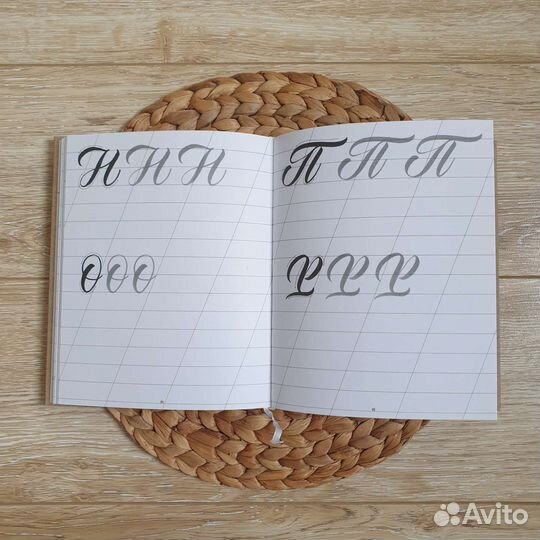 Н Н Н
О О О
П П П
Р Р Р
Avito